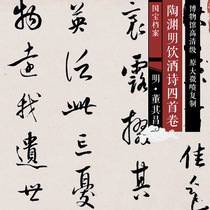 博物馆高清级 原大微喷复制
陶渊明饮酒诗四首卷
国宝档案
明·董其昌
佳
裛露掇其
英泛此忘憂
物遠我遺世